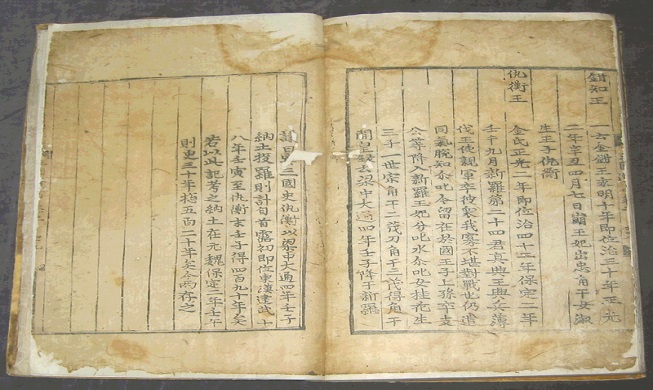 鉗知王
一云金鉗王永明十年即位治三十年正光
二年辛丑四月七日崩王妃出忠角干女淑
生王子仇衡
仇衡王
金氏正光二年即位治四十二年保定二年
壬午九月新羅第二十四君真興王興兵薄
伐王使親軍卒彼衆我寡不堪對戰也仍遣
同氣脫知尒叱今留在於國王子上孫卒支
公等降入新羅王妃分叱水尒叱女桂花生
三子一世宗角干二茂刀角干三茂得角干
開皇録云梁中大通四年壬子降于新羅
議曰案三國史仇衡以梁中大通四年壬子
納土投羅則計自首露初即位東漢建武十
八年壬寅至仇衡末壬子得四百九十年矣
若以此記考之納土在元魏保定二年壬午
則更三十年揔五百二十年矣今兩存之